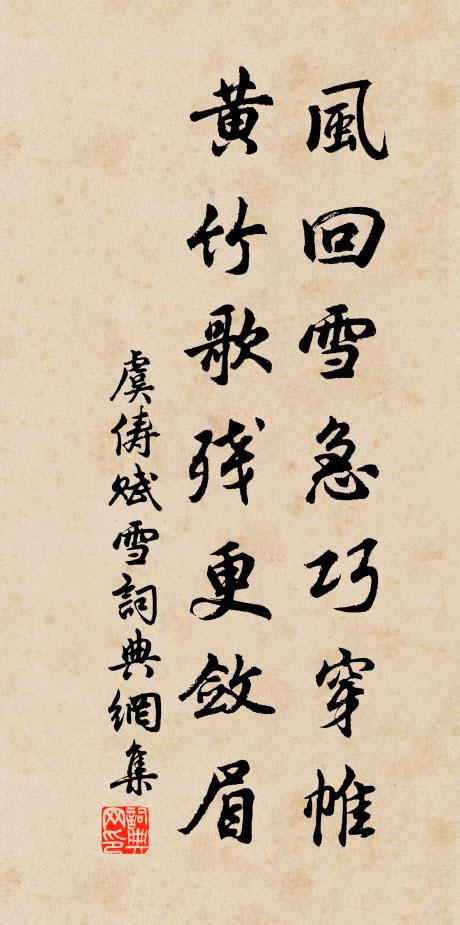 風回雪急巧穿帷
黃竹歌残更斂眉
虞儔賦雪詞典網集
詞典网印